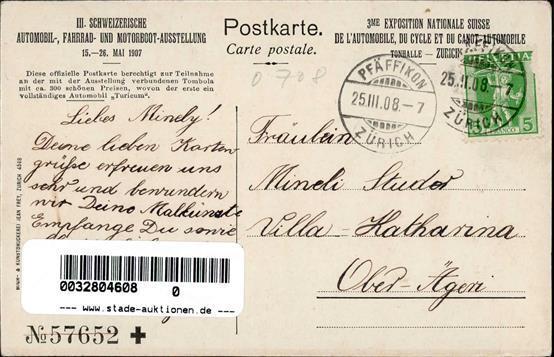 III. SCHWEIZERISCHE
AUTOMOBIL-, FAHRRAD- UND MOTORBOOT-AUSSTELLUNG
15.—26. MAI 1907
Diese offizielle Postkarte berechtigt zur Teilnahme
an der mit der Ausstellung verbundenen Tombola
mit ca. 300 schönen Preisen, wovon der erste ein
vollständiges Automobil „Turicum".
Postkarte.
Carte postale.
3ME EXPOSITION NATIONALE SUISSE
DE L'AUTOMOBILE, DU CYCLE ET DU CANOT-AUTOMOBILE
TONHALLE — ZURICH
0708
PFÄFFIKON
25.III.08.-7
ZÜRICH
PFÄFFIKON
25.III.08.-7
ZÜRICH
HELVETIA
FRANCO 5
Liebes Minely!
Deine lieben Karten-
grüße erfreuen uns
sehr und bewundern
wir Deine Malkünste
Empfange Du sowie
Fräulein
Mineli Studer
Villa Katharina
Ober-Ägeri
KUNSTDRUCKEREI JEAN FREY, ZÜRICH 4568
0032804608 0
--- www.stade-auktionen.de ---
№ 57652 ✚